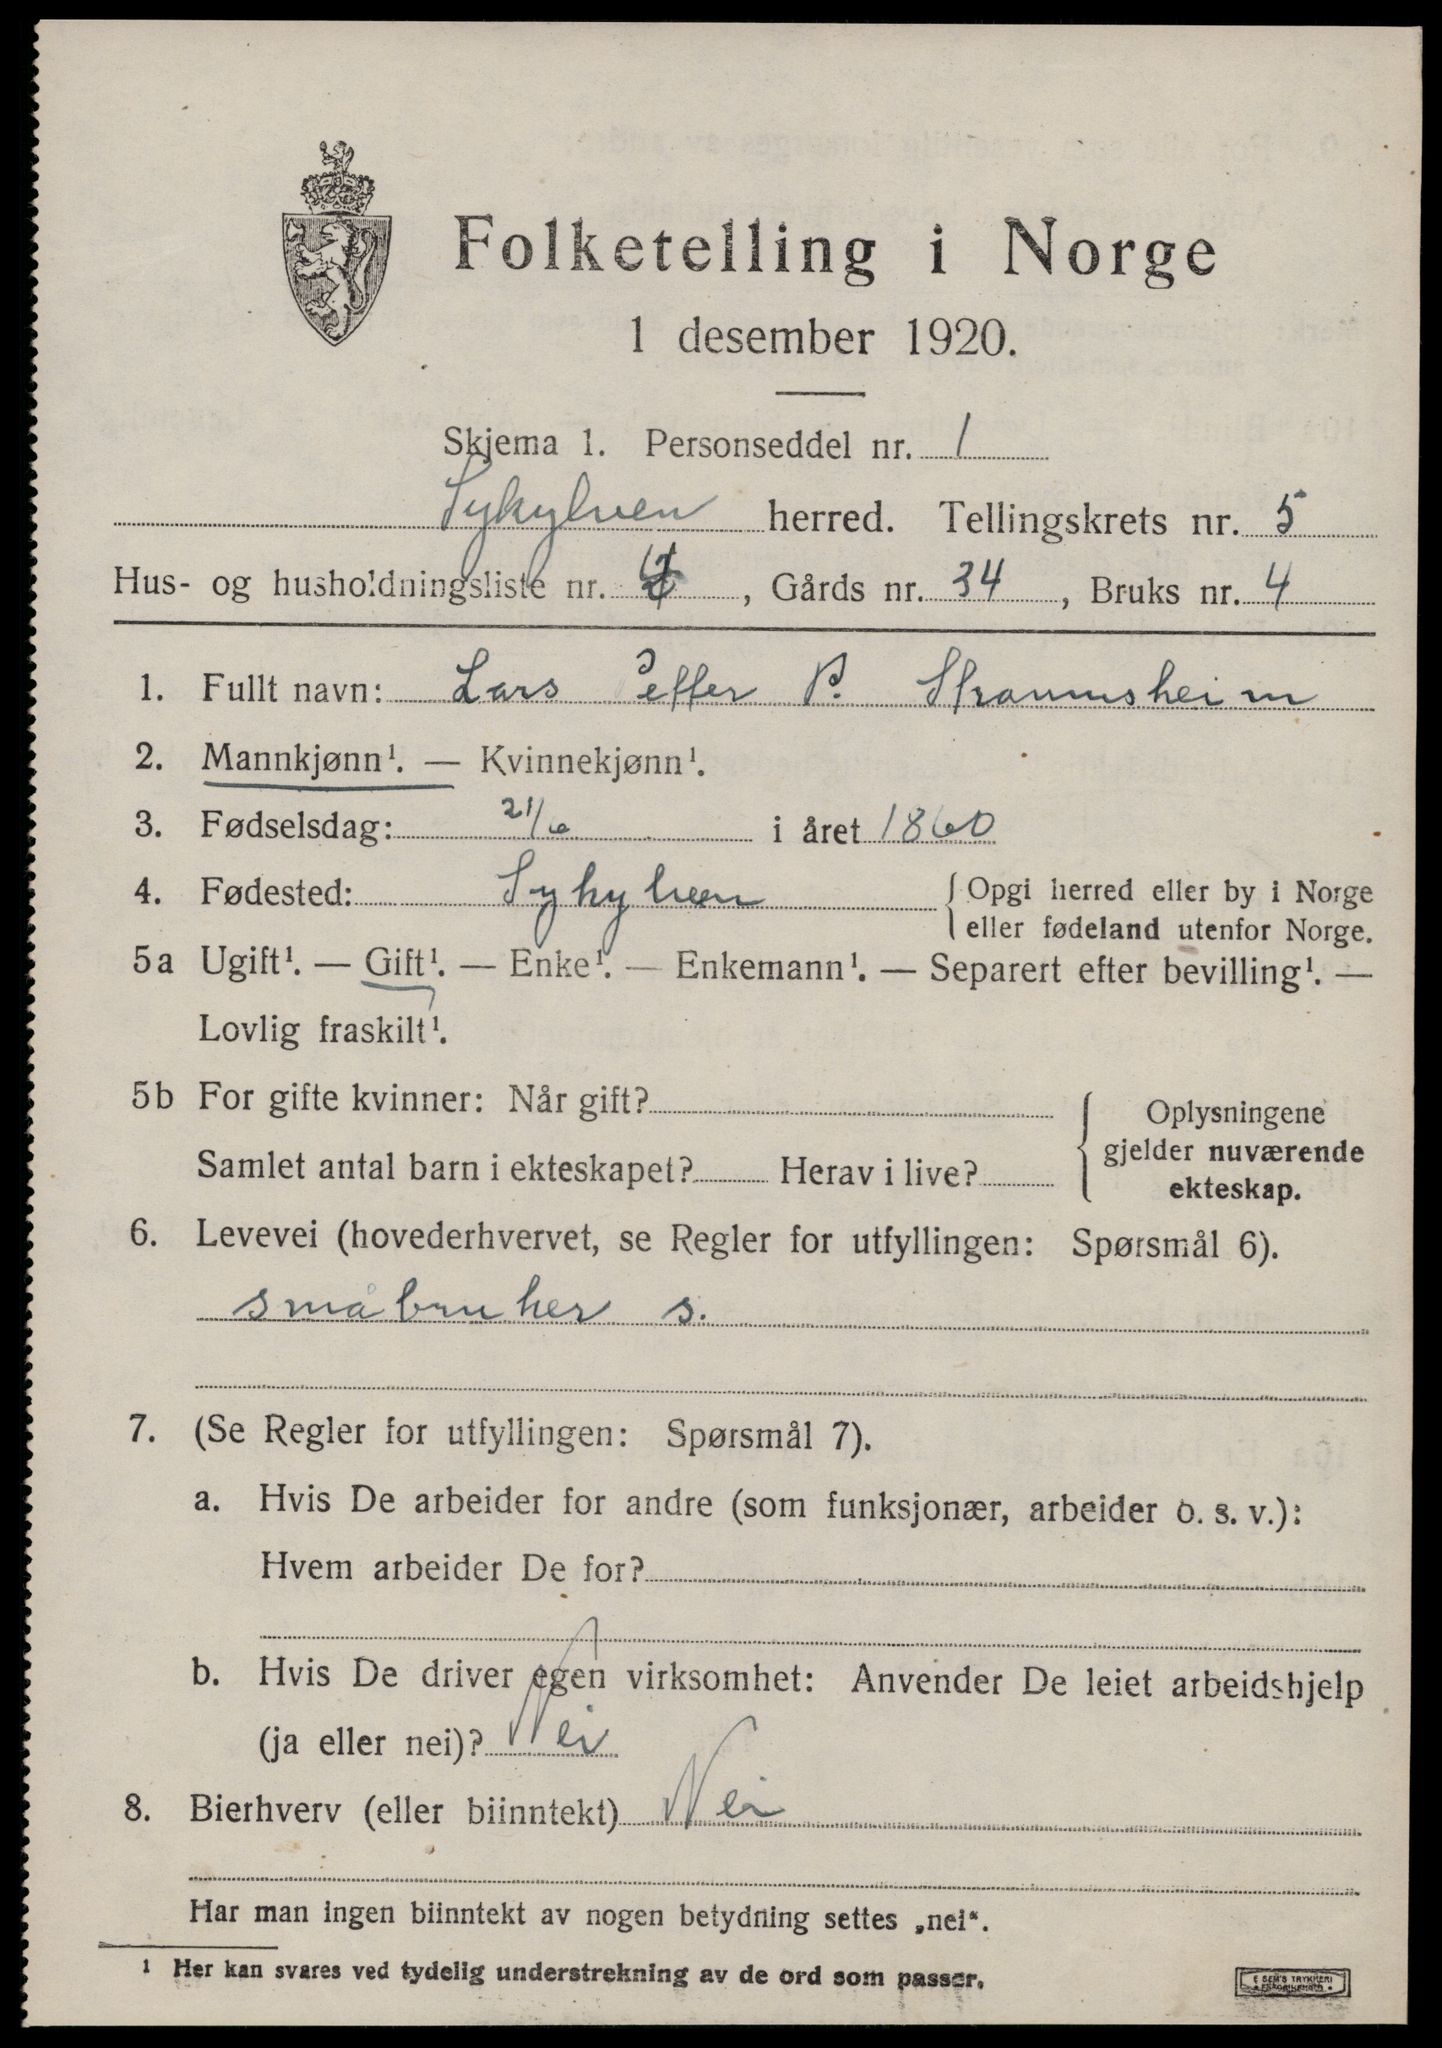 Folketelling i Norge
1 desember 1920.
Skjema 1. Personseddel nr. 1
Sykylven herred. Tellingskrets nr. 5
Hus- og husholdningsliste nr. , Gårds nr. 34, Bruks nr. 4
1. Fullt navn: Lars Petter P. Straumsheim
2. Mannkjønn¹. — Kvinnekjønn¹.
3. Fødselsdag: 21/6 i året 1860
4. Fødested: Sykylven { Opgi herred eller by i Norge
eller fødeland utenfor Norge.
5a Ugift¹. — Gift¹. — Enke¹. — Enkemann¹. — Separert efter bevilling¹. —
Lovlig fraskilt¹.
5b For gifte kvinner: Når gift? { Oplysningene
gjelder nuværende
Samlet antal barn i ekteskapet? Herav i live? ekteskap.
6. Levevei (hovederhvervet, se Regler for utfyllingen: Spørsmål 6).
småbruker s.
7. (Se Regler for utfyllingen: Spørsmål 7).
a. Hvis De arbeider for andre (som funksjonær, arbeider o. s. v.):
Hvem arbeider De for?
b. Hvis De driver egen virksomhet: Anvender De leiet arbeidshjelp
(ja eller nei)? Nei
8. Bierhverv (eller biinntekt) Nei
Har man ingen biinntekt av nogen betydning settes „nei“.
¹ Her kan svares ved tydelig understrekning av de ord som passer.